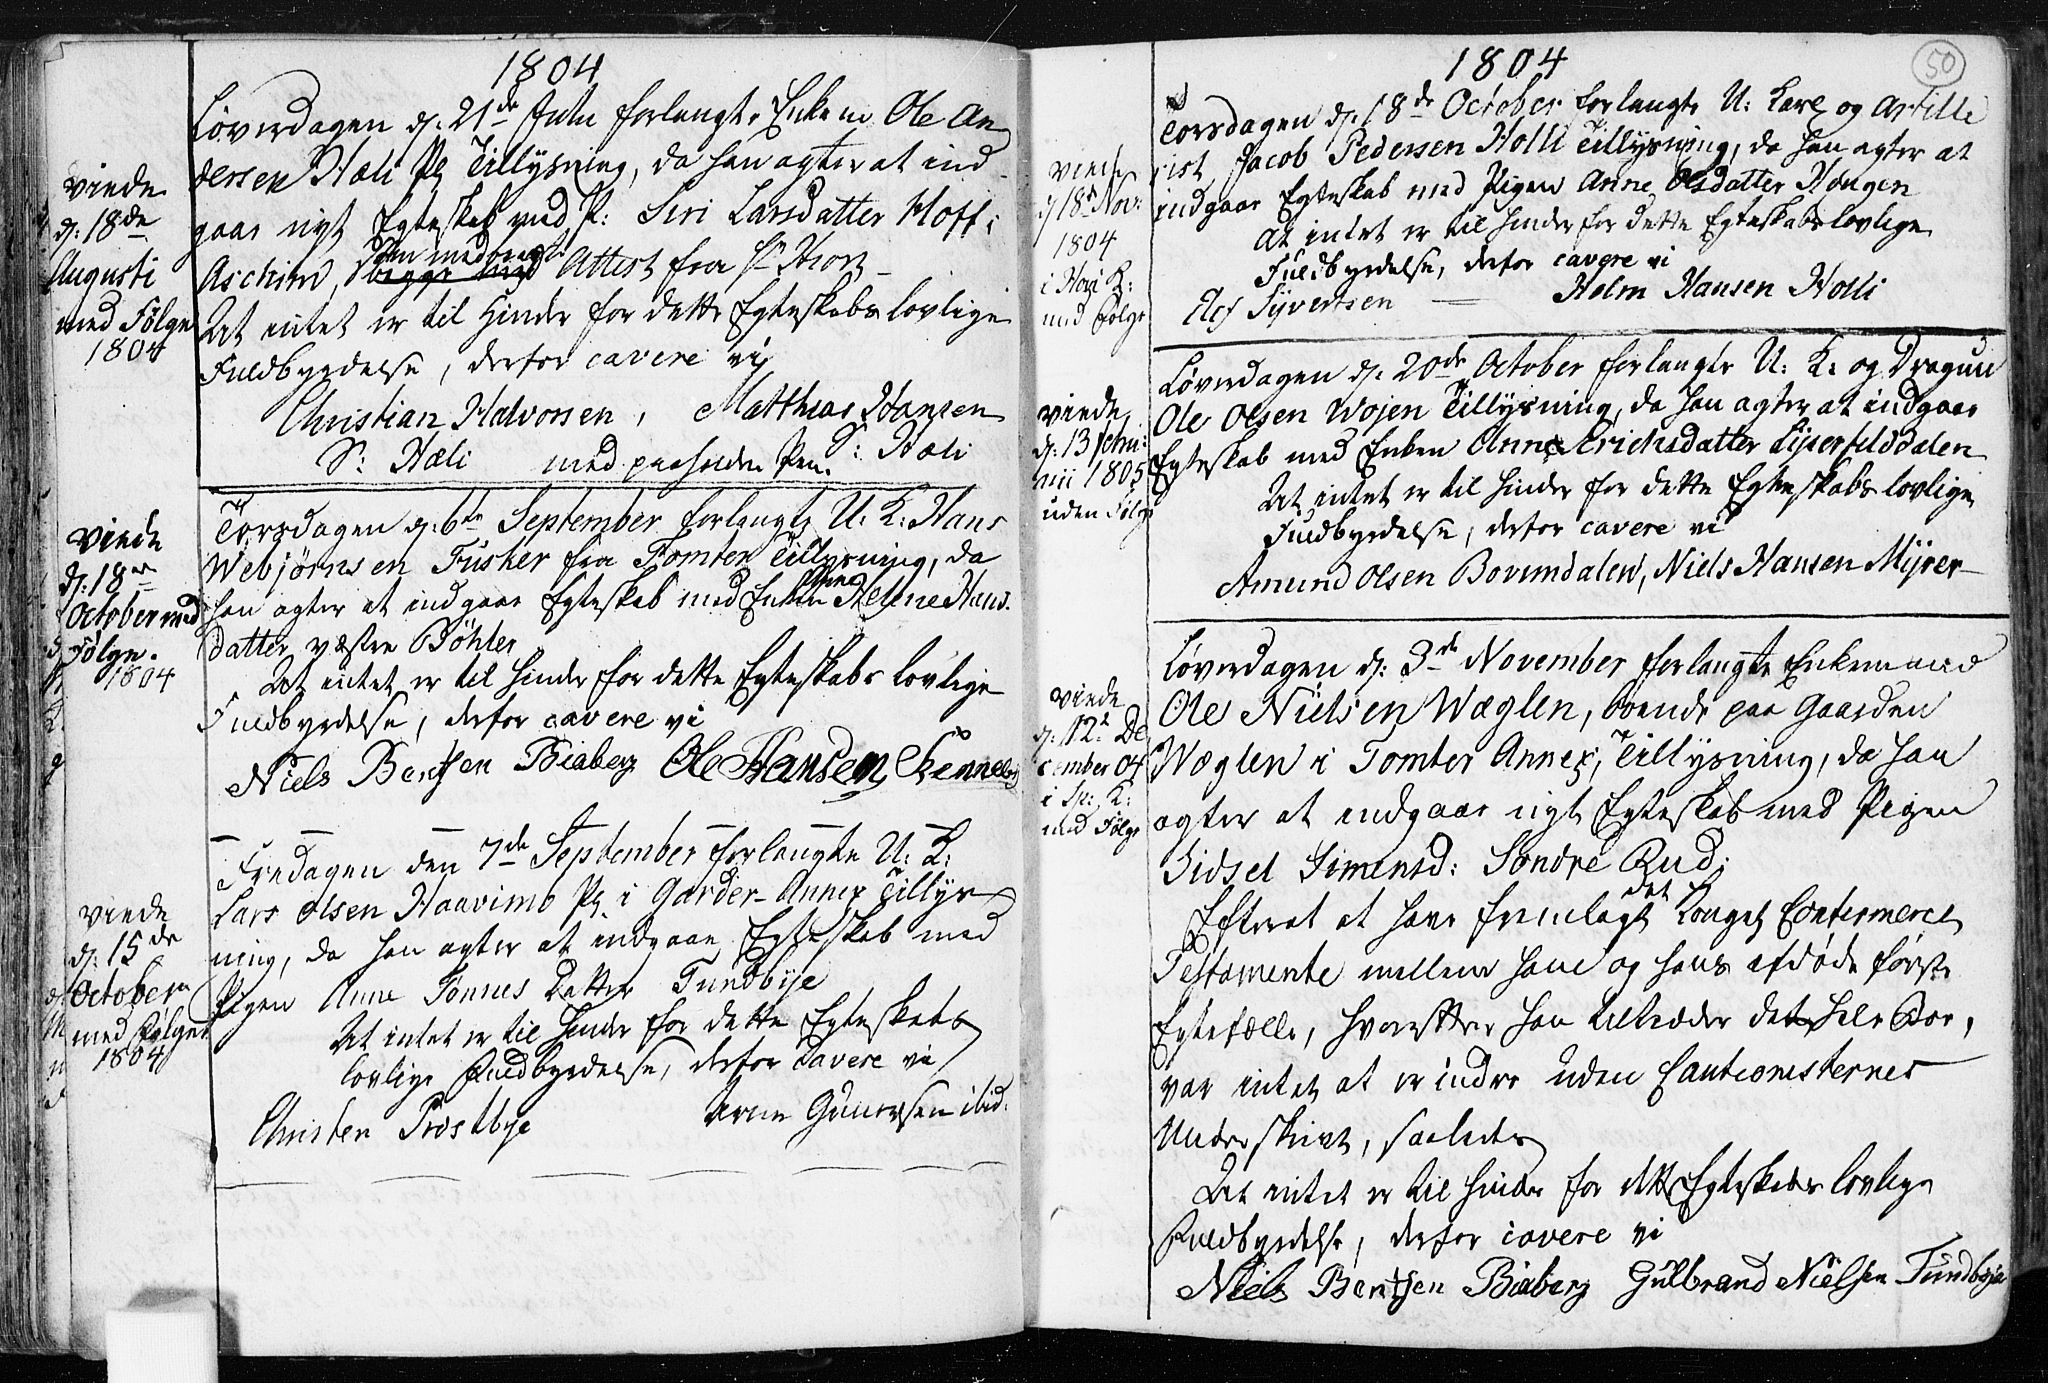 1804
Løverdagen d: 21de Julii forlangte Enkem. Ole An
dersen Hæli Pl Tillysning, da han agter at ind
gaae nyt Egteskab med P: Siri Larsdatter Hoff i
Aschim, Attest fra Hr
At intet er til Hinder for dette Egteskabs lovlige
Fuldbyrdelse, derfor cavere vi
Christian Halvorsen, Matthias Hansen
S: Hæli med paaholden Pen. S: Hæli
viede
d: 18de
Augusti
med Følge
1804
Torsdagen d: 6te September forlangte U: K: Hans
Webjørnsen Fusker fra Tomter Tillysning, da
han agter at indgaae Egteskab med Enken Helene Hans
datter væstre Bøhler
At intet er til Hinder for dette Egteskabs lovlige
Fuldbyrdelse, derfor cavere vi
Niels Bentsen Biaberg Ole Hansen
viede
d: 18de
October med
Følge.
1804
Fredagen den 7de September forlangte U: K:
Lars Olsen Haavimb Pl i Garder-Annex Tillys
ning, da han agter at indgaae Egteskab med
Pigen Anne Tønnes Datter Tundbye
At intet er til Hinder for dette Egteskabs
lovlige Fuldbyrdelse, derfor cavere vi
Christen Prostbye Arne Gunersen ibid:
viede
d: 15de
October
med Følge
1804
50
1804
Torsdagen d: 18de October forlangte U: Karl og Artille
rist, Jacob Pedersen Holli Tillysning, da han agter at
indgaae Egteskab med Pigen Anne Olsdatter Hougen
At intet er til Hinder for dette Egteskabs lovlige
Fuldbyrdelse, derfor cavere vi
Elef Syvertsen — Helm Hansen Holli
viede
d 18de Nov:
1804
i Hovi K:
med Følge
Løverdagen d: 20de October forlangte U: K: og Dragun
Ole Olsen Wojen Tillysning, da han agter at indgaae
Egteskab med Enken Anne Erichsdatter
At intet er til Hinder for dette Egteskabs lovlige
Fuldbyrdelse, derfor cavere vi
Amund Olsen Bovimdalen, Niels Hansen Myrer
viede
d: 13
1805
uden Følge
Løverdagen d: 3de November forlangte Enkemand
Ole Nielsen Wæglen, boende paa Gaarden
Wæglen i Tomter Annex, Tillysning, da han
agter at indgaae nyt Egteskab med Pigen
Sidsel Simensd: Søndre Rud;
Efterat at have fremlagt det Kongel: Confermerede
Testamente mellem ham og hans afdøde første
Egtefælle, hvorefter han tiltræder det hele Boe,
var intet at erindre uden Cautionisternes
Underskrivt, saaledes
At intet er til Hinder for dette Egteskabs lovlige
Fuldbyrdelse, derfor cavere vi
Niels Bentsen Biaberg Gulbrand Nielsen Tundbye
viede
d: 12te De
cember 04
i Sp: K:
med Følge